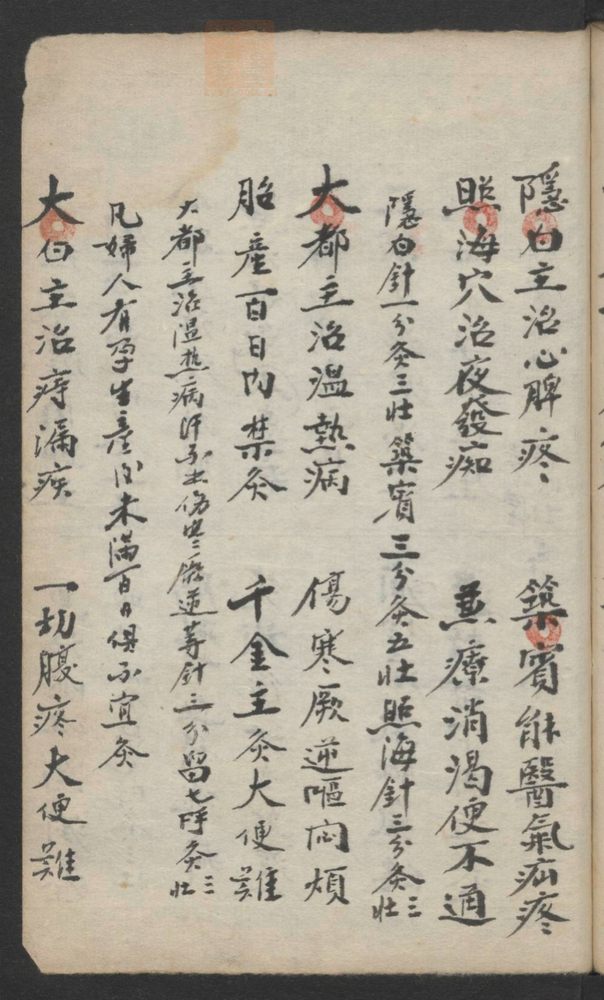 隱白主治心脾疼 築賓能醫氣疝疼
照海穴治夜發痴 兼療消渴便不通
隱白針一分灸三壯築賓三分灸五壯照海針三分灸三壯
大都主治溫熱病 傷寒厥逆嘔悶煩
胎產百日內禁灸 千金主灸大便難
大都主治溫熱病汗不出傷寒厥逆等針三分留七呼灸三壯
凡婦人有孕生產後未滿百日俱不宜灸
大白主治痔漏疾 一切腹疼大便難